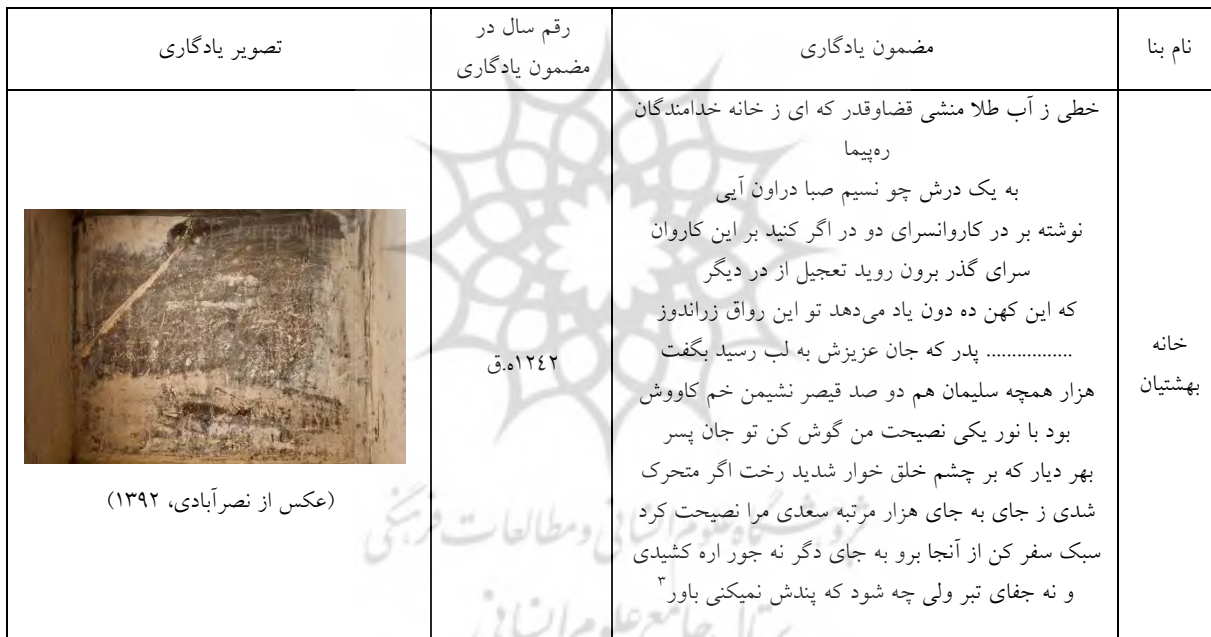 نام بنا
مضمون یادگاری
رقم سال در
مضمون یادگاری
تصویر یادگاری
خانه
بهشتیان
خطی ز آب طلا منشی قضاوقدر که ای ز خانه خدامندگان
ره‌پیما
به یک درش چو نسیم صبا دراون آیی
نوشته بر در کاروانسرای دو در اگر کنید بر این کاروان
سرای گذر برون روید تعجیل از در دیگر
که این کهن ده دون یاد می‌دهد تو این رواق زراندوز
................. پدر که جان عزیزش به لب رسید بگفت
هزار همچه سلیمان هم دو صد قیصر نشیمن خم کاووش
بود با نور یکی نصیحت من گوش کن تو جان پسر
بهر دیار که بر چشم خلق خوار شدید رخت اگر متحرک
شدی ز جای به جای هزار مرتبه سعدی مرا نصیحت کرد
سبک سفر کن از آنجا برو به جای دگر نه جور اره کشیدی
و نه جفای تبر ولی چه شود که پندش نمیکنی باور۳
۱۲٤۲ه.ق
(عکس از نصرآبادی، ۱۳۹۲)
پژوهشگاه علوم انسانی و مطالعات فرهنگی
پرتال جامع علوم انسانی